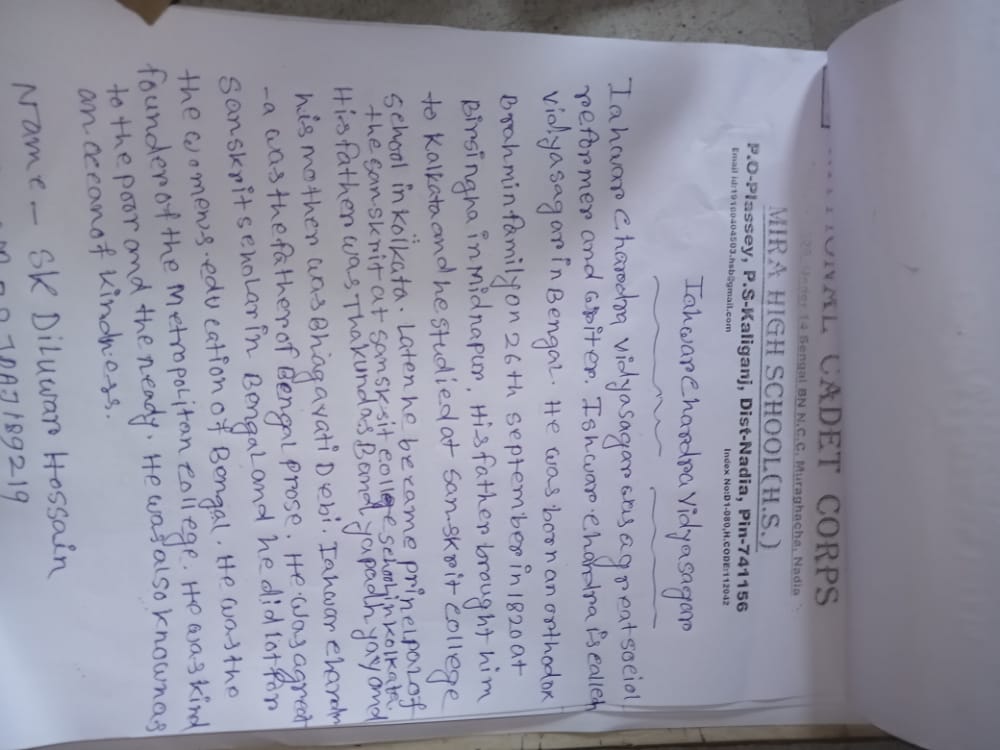 NATIONAL CADET CORPS
Under 14 Bengal BN N.C.C, Muraghacha, Nadia
MIRA HIGH SCHOOL (H.S.)
P.O-Plassey, P.S-Kaliganj, Dist-Nadia, Pin-741156
Email id:19100404503.hsb@gmail.com Index No:D1-080,H.CODE:112042
Iahwar chardra vidyasagar
Iahwar chardra vidyasagar was a great social
reformer and writer. Ishwar chandra is called
vidyasagar in Bengal. He was born an orthodox
Brahmin family on 26th september in 1820 at
Birsingha in midnapur. His father brought him
to kolkata and he studied at sanskrit college
school in kolkata. Later he became principal of
the sanskrit at sanskrit college school in kolkata
His father was Thakurdas Bandyapadhyay and
his mother was Bhagavati Debi. Iahwar chardra
-a was the father of Bengal prose. He was a great
sanskrit scholar in Bengal and he did lot for
the womens education of Bengal. He was the
founder of the Metropolitan college. He was kind
to the poor and the needy. He was also known as
an oceean of kindness.
Name - SK Diluwar Hossain